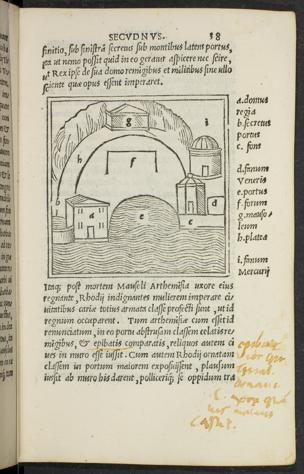 SECVDNVS. 38
finitio, sub sinistra secretus sub montibus latens portus,
ita ut nemo possit quid in eo geratur aspicere nec scire,
ut Rex ipse de sua domo remigibus et militibus sine ullo
sciente quæ opus essent imperaret.
g
i
h
f
b
a
e
c
d
a. domus
regia
b. secretus
portus
c. fons
d. fanum
Veneris
e. portus
f. forum
g. mauso/
leum
h. platea
i. fanum
Mercurij
Itaq; post mortem Mausoli Arthemisia uxore eius
regnante, Rhodij indignantes mulierem imperare ci
uitatibus cariæ totius armata classe profecti sunt, ut id
regnum occuparent. Tum arthemisiæ cum esset id
renunciatum, in eo portu abstrusam classem celatis re/
migibus, & epibatis comparatis, reliquos autem ci
ues in muro esse iussit. Cum autem Rhodij ornatam
classem in portum maiorem exposuissent, plausum
iussit ab muro his darent, polliceriq; se oppidum tra